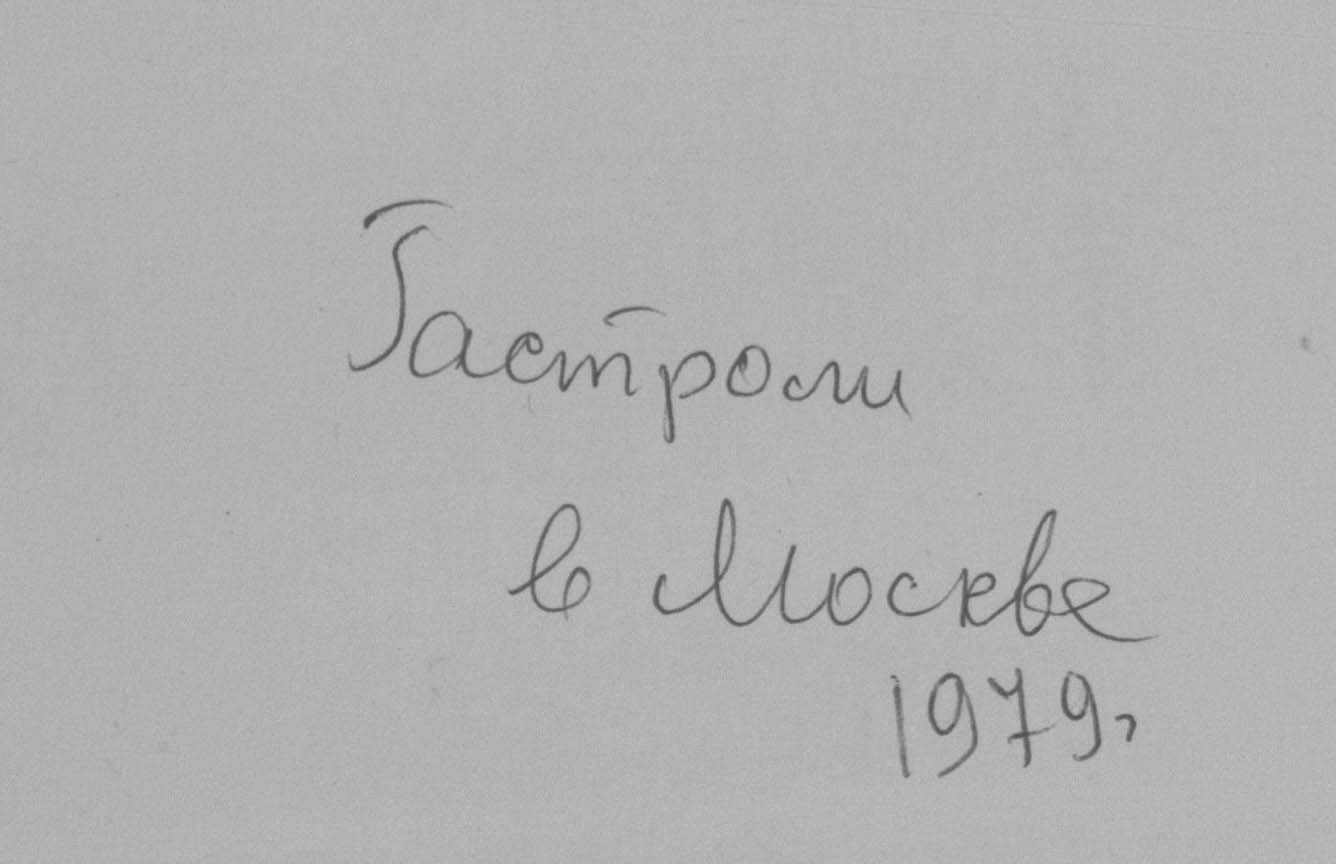 Гастроли
в Москве
1979г